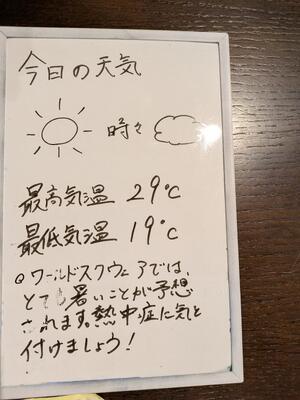 今日の天気
時々
最高気温 29℃
最低気温 19℃
ワールドスクウェアでは、
とても暑いことが予想
されます。熱中症に気を
付けましょう!